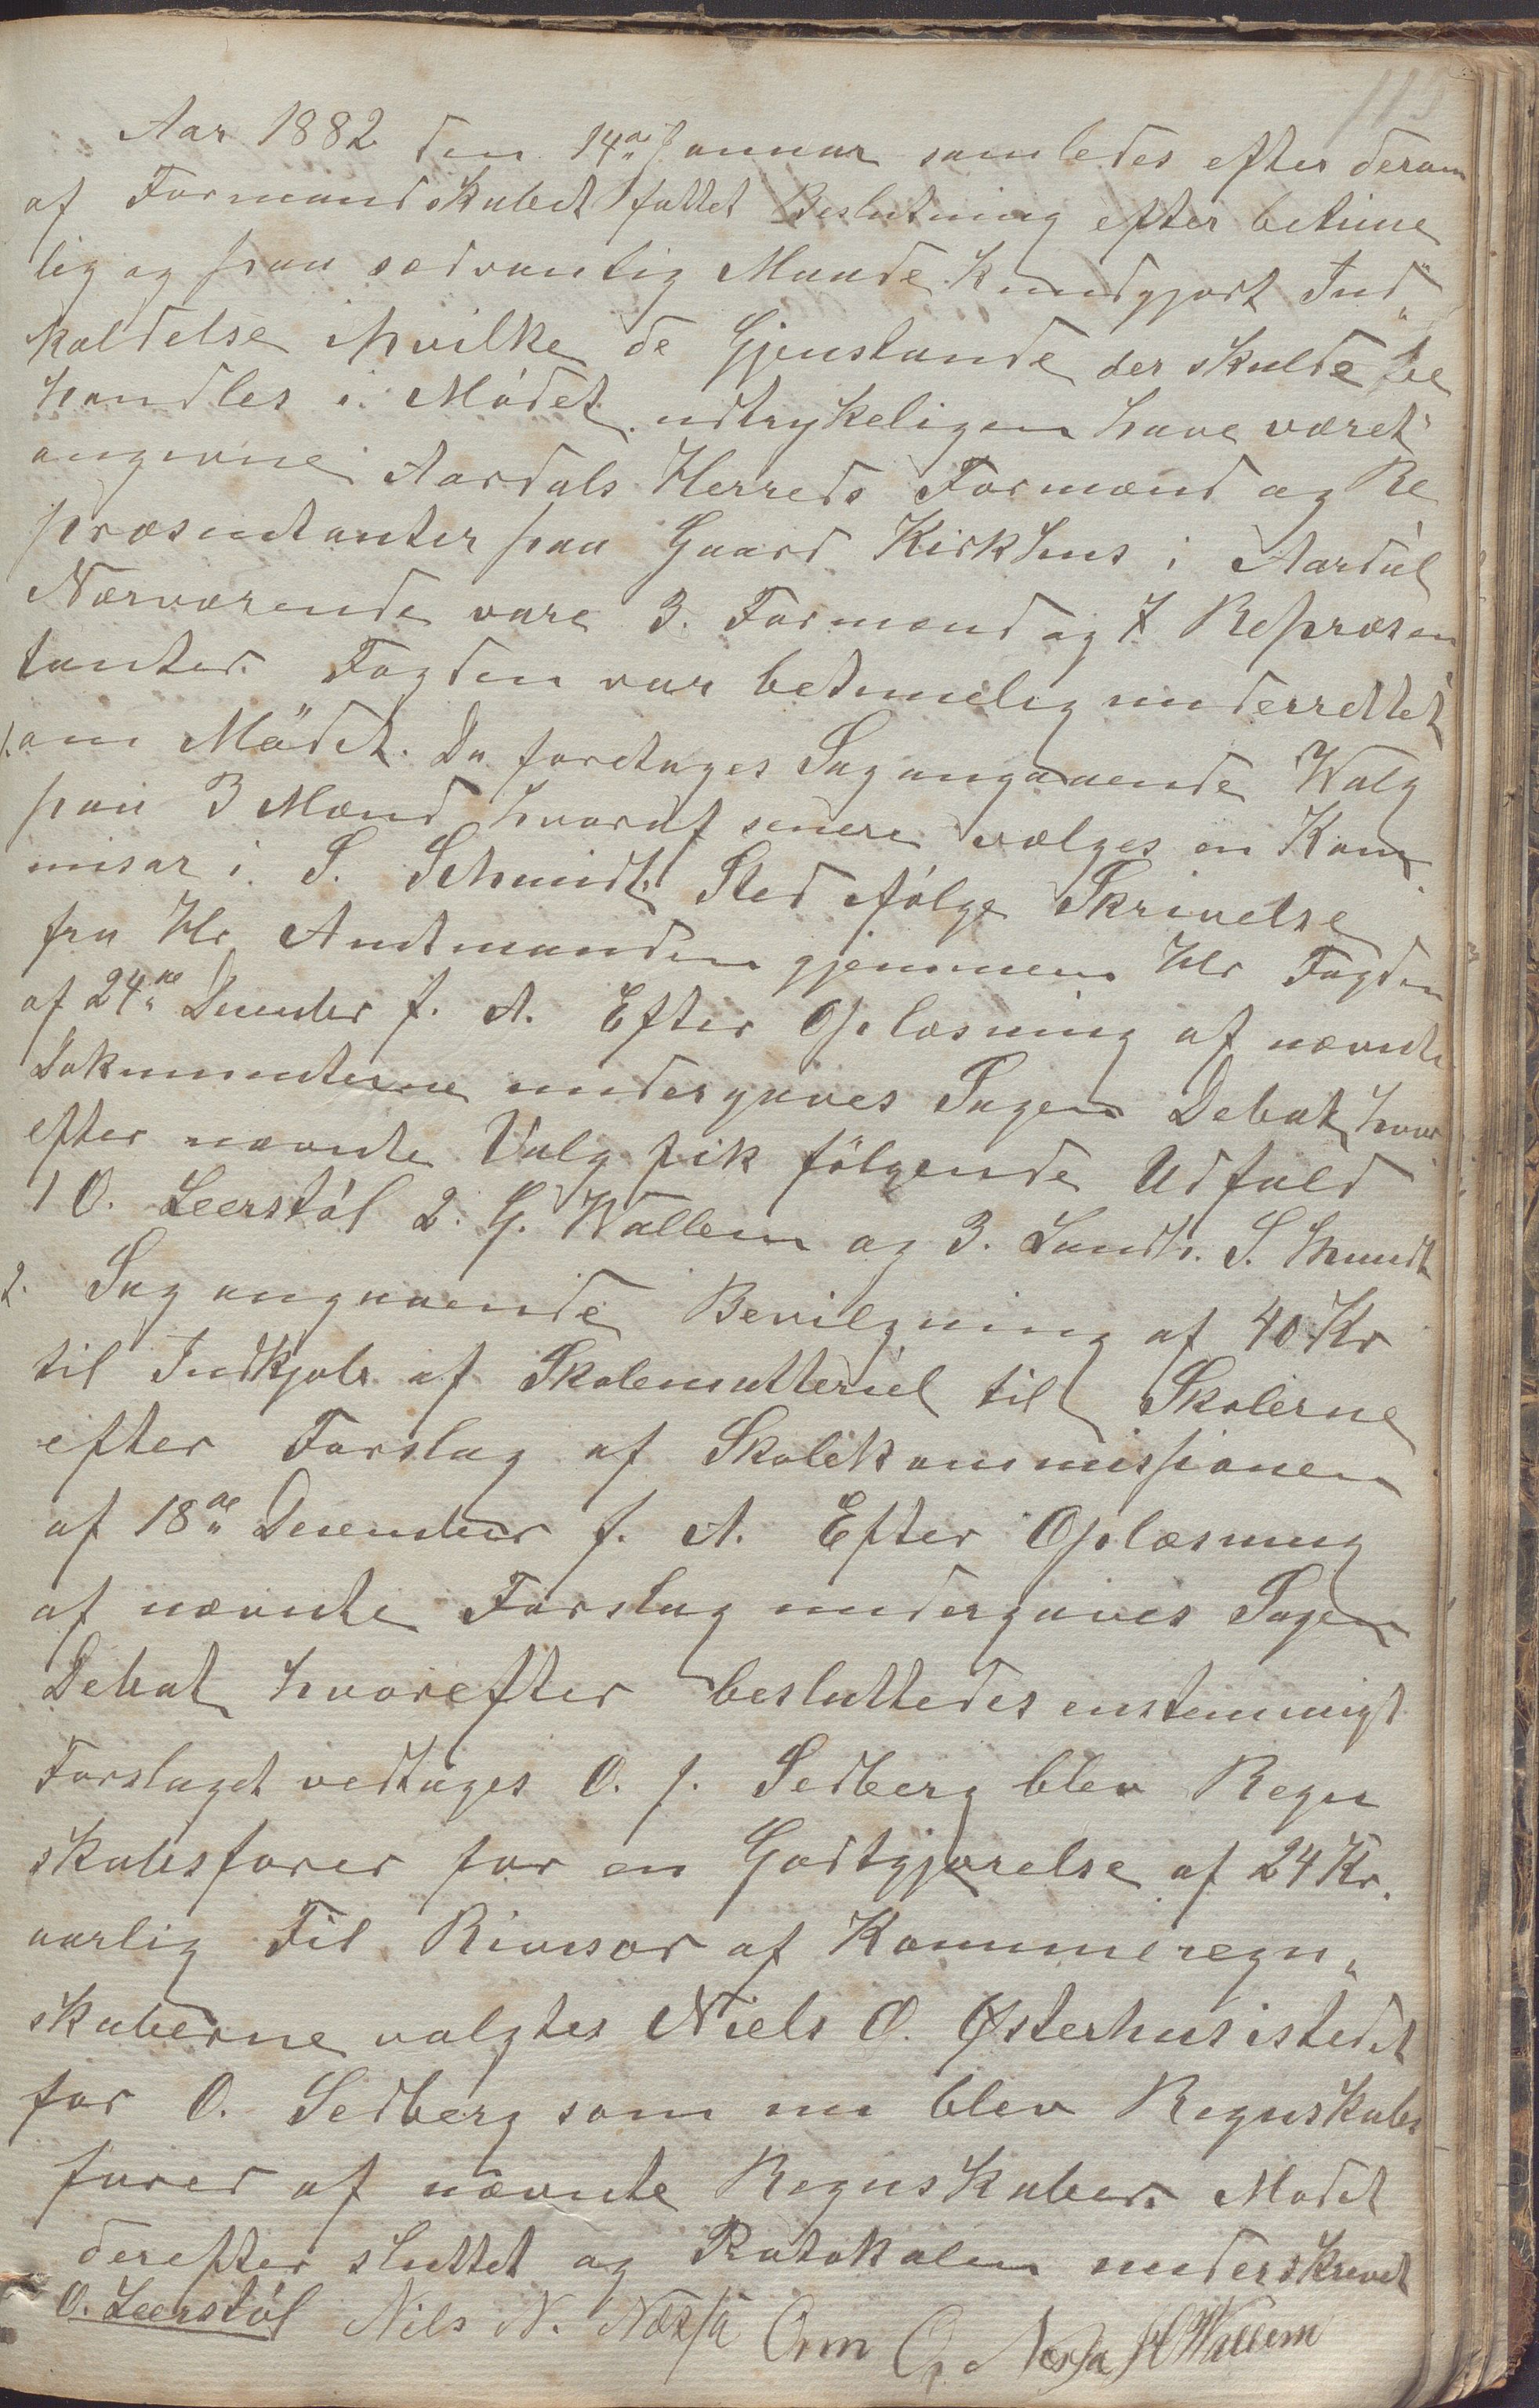 113
Aar 1882 den 14de Januar samledes efter derom
af Formandskabet fattet Beslutning efter betime
lig og paa sedvanlig Maade kundgjort Ind„
kaldelse ihvilke de Gjenstande der skulde be
handles i Mödet udtrykeligen have været
angivne Aardals Herreds Formænd og Re
præsentanter paa Gaard Kirkhus i Aardal
Nærværende vare 3. Formænd og 7 Repræsen
tanter. Fogden var betimelig underrettet
1. om Mödet. Da foretages Sag angaaende Walg
paa 3 Mænd hvoraf senere vælges en Kom
misær i S. Schmidts Sted ifölge Skrivelse
fra Hr Amtmanden gjennem Hr Fogden
af 24de December f. A. Efter Oplæsning af nævnte
Dokumenterne undergaves Sagen Debat hvor
efter nævnte Valg fik fölgende Udfald
1 O. Leerstöl 2. G. Wallem og 3. Landh. S. Schmidt
2. Sag angaaende Bevilgning af 40 Kr
til Indkjøb af Skolematteriel til Skolerne
efter Forslag af Skolekommissionen
af 18de Desember f. A. Efter Oplæsning
af nævnte Forslag undergaves Sagen
Debat hvorefter besluttedes enstemmigt
Forslaget vedtages O. J. Sedberg blev Regn
skabsfører for en Godtgjørelse af 24 Kr.
aarlig Til Rivisor af Kommuneregn„
skaberne valgtes Niels O. Østerhus istedet
for O. Sedberg som nu blev Regnskabs
fører af nævnte Regnskaber. Mødet
derefter sluttet og Protokolen underskrevet
O. Leerstöl Nils N. Næssa Orm O. Nessa H Wallem